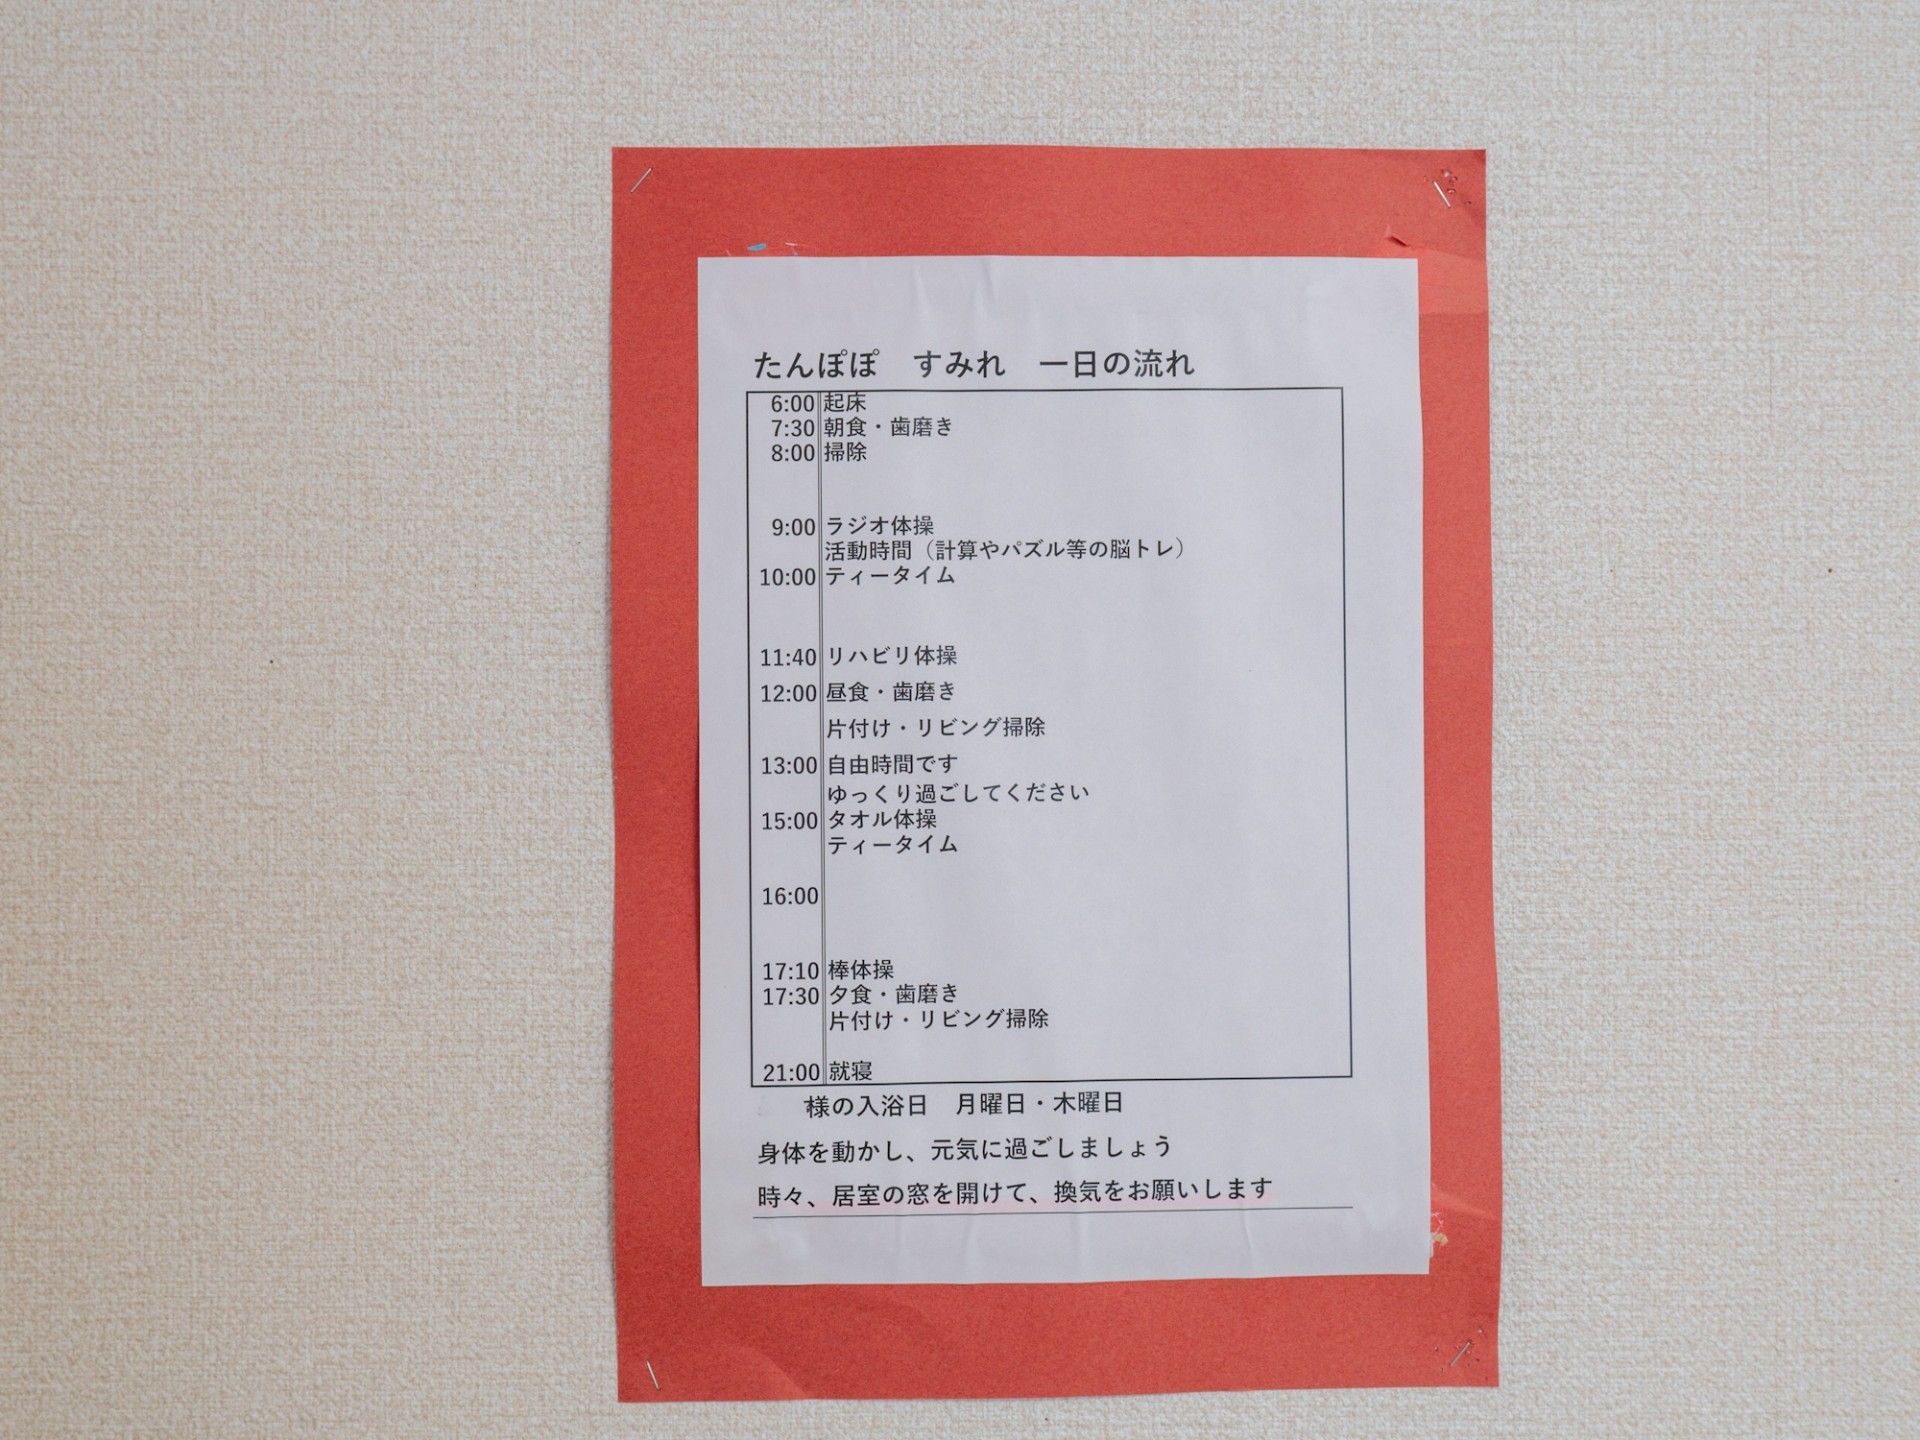 たんぽぽ　すみれ　一日の流れ
6:00 起床
7:30 朝食・歯磨き
8:00 掃除
9:00 ラジオ体操
活動時間（計算やパズル等の脳トレ）
10:00 ティータイム
11:40 リハビリ体操
12:00 昼食・歯磨き
片付け・リビング掃除
13:00 自由時間です
ゆっくり過ごしてください
15:00 タオル体操
ティータイム
16:00
17:10 棒体操
17:30 夕食・歯磨き
片付け・リビング掃除
21:00 就寝
様の入浴日　月曜日・木曜日
身体を動かし、元気に過ごしましょう
時々、居室の窓を開けて、換気をお願いします